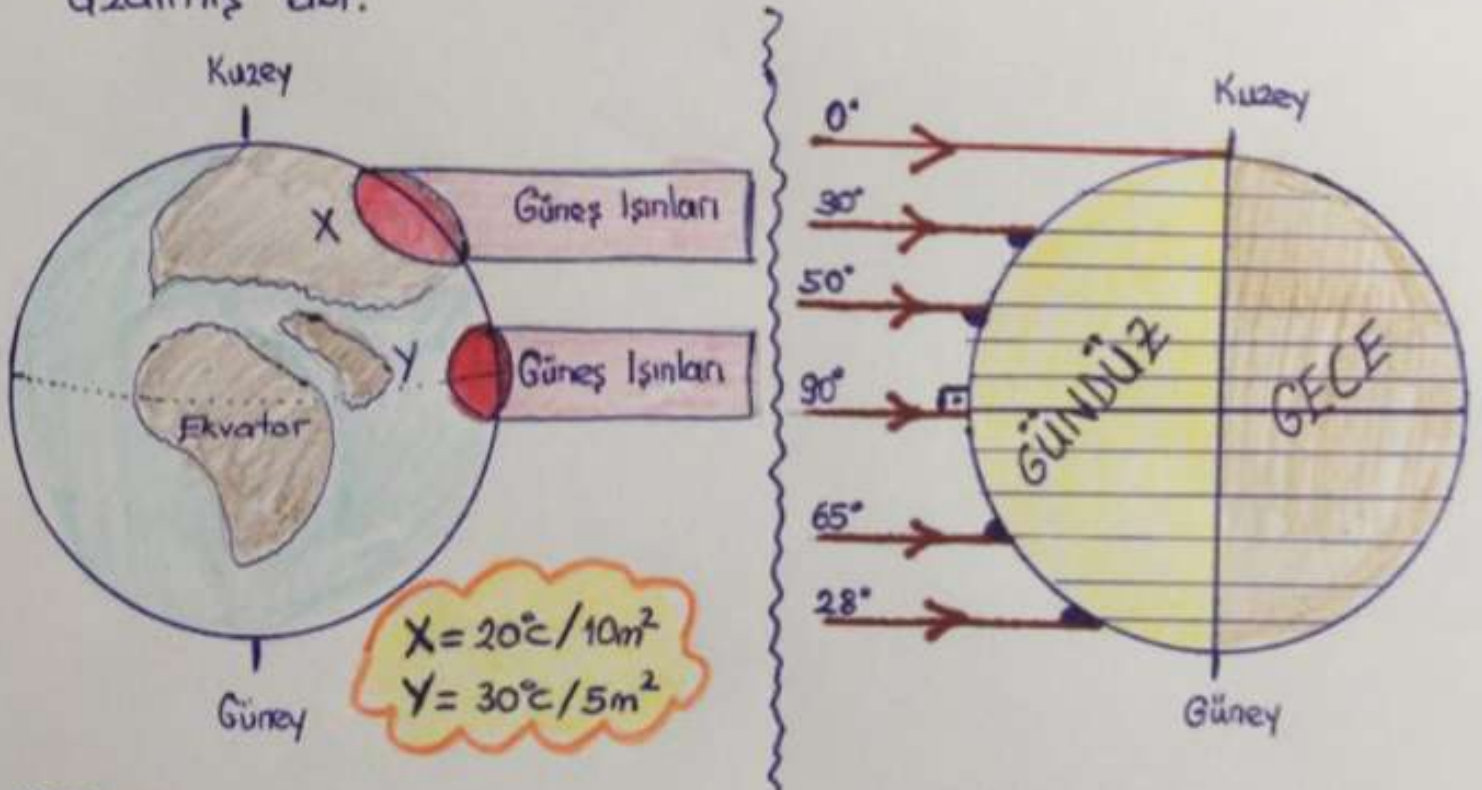 Kuzey
Güneş Işınları
X
Güneş Işınları
Y
Ekvator
X = 20°c/10m²
Y = 30°c/5m²
Güney
Kuzey
0°
30°
50°
90°
65°
28°
GÜNDÜZ
GECE
Güney